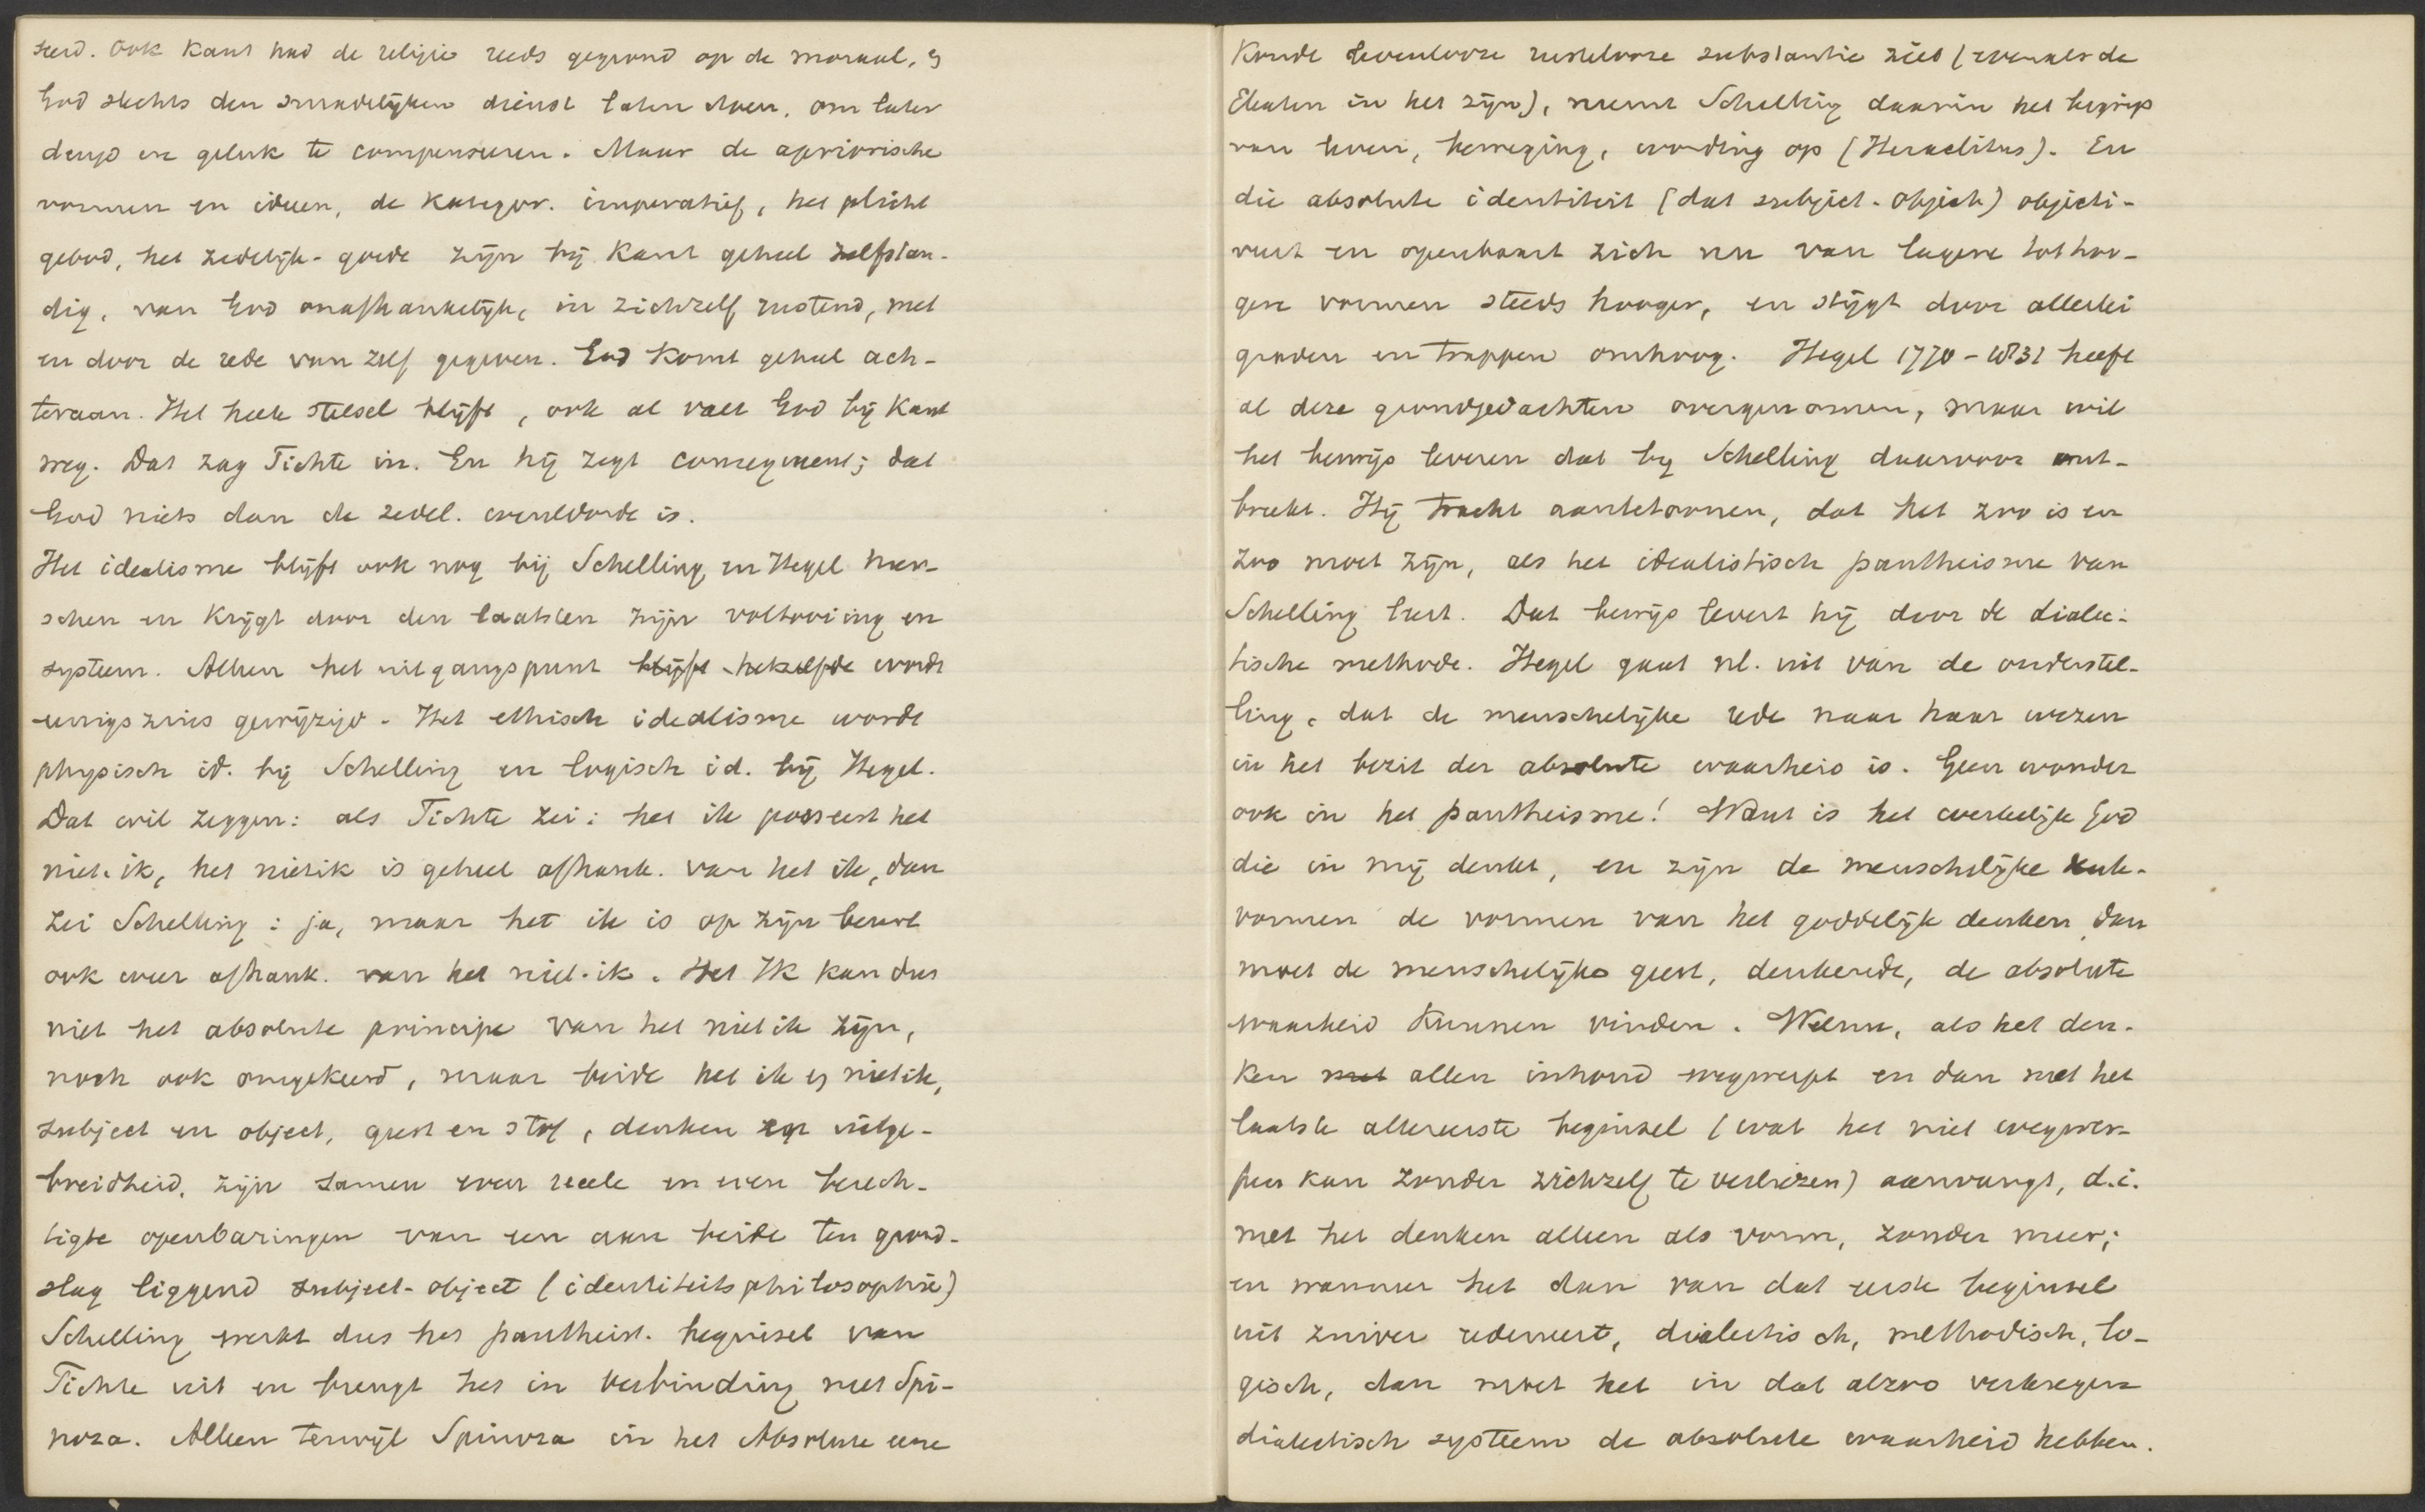 seerd. Ook Kant had de religie reeds gegrond op de moraal, &
God slechts den smadelijken dienst laten doen, om later
deugd en geluk te compenseeren. Maar de apriorische
vormen en ideeen, de kategor. imperatief, het plicht
gebod, het zedelijk-goede zijn bij Kant geheel zelfstan-
dig, van God onafhankelijk, in zichzelf rustend, met
en door de rede van zelf gegeven. God komt geheel ach-
teraan. Het heele stelsel blijft, ook al valt God bij Kant
weg. Dat zag Fichte in. En hij zegt consequent; dat
God niets dan de zedel. wereldorde is.
Het idealisme blijft ook nog bij Schelling en Hegel heer-
schen en krijgt door den laatsten zijn voltooiing en
systeem. Alleen het uitgangspunt blijft hetzelfde wordt
eenigszins gewijzigd. Het ethisch idealisme wordt
physisch id. bij Schelling en logisch id. bij Hegel.
Dat wil zeggen: als Fichte zei: het ik poneert het
niet-ik, het nietik is geheel afhank. van het ik, dan
zei Schelling: ja, maar het ik is op zijn beurt
ook weer afhank. van het niet-ik. Het Ik kan dus
niet het absolute principe van het niet ik zijn,
noch ook omgekeerd, maar beide het ik & niet ik,
subject en object, geest en stof, denken en uitge-
breidheid, zijn samen even reeele en even berech-
tigde openbaringen van een aan beide ten grond-
slag liggend subject-object (identiteitsphilosophie)
Schelling werkt dus het pantheist. beginsel van
Fichte uit en brengt het in verbinding met Spi-
noza. Alleen terwijl Spinoza in het Absolute eene
koude levenlooze rustelooze substantie ziet (evenals de
Eleaten in het zijn), neemt Schelling daarin het begrip
van leven, beweging, wording op (Heraclitus). En
die absolute identiteit (dat subject-object) objecti-
veert en openbaart zich nu van lagere tot hoo-
gere vormen steeds hooger, en stijgt door allerlei
graden en trappen omhoog. Hegel 1770-1831 heeft
al deze grondgedachten overgenomen, maar wil
het bewijs leveren dat bij Schelling daarvoor ont-
breekt. Hij tracht aantetoonen, dat het zoo is en
zoo moet zijn, als het idealistisch pantheisme van
Schelling leert. Dat bewijs levert hij door de dialec-
tische methode. Hegel gaat nl. uit van de onderstel-
ling, dat de menschelijke rede naar haar wezen
in het bezit der absolute waarheid is. Geen wonder
ook in het pantheisme! Want is het werkelijk God
die in mij denkt, en zijn de menschelijke denk-
vormen de vormen van het goddelijk denken, dan
moet de menschelijke geest, denkende, de absolute
waarheid kunnen vinden. Welnu, als het den-
ken met allen inhoud wegwerpt en dan met het
laatste allereerste beginsel (wat het niet wegwer-
pen kan zonder zichzelf te verliezen) aanvangt, d.i.
met het denken alleen als vorm, zonder meer;
en wanneer het dan van dat eerste beginsel
uit zuiver redeneert, dialectisch, methodisch, lo-
gisch, dan moet het in dat alzoo verkregene
dialectisch systeem de absolute waarheid hebben.